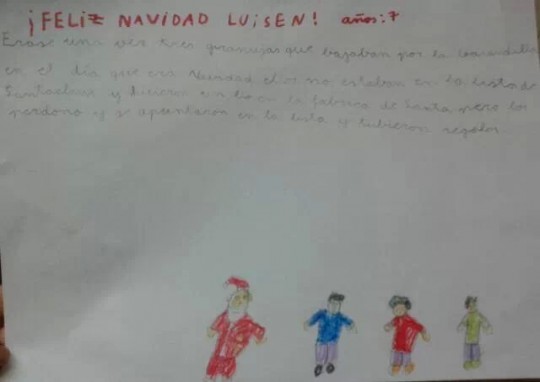 ¡FELiZ NAVIDAD LUiSEN! años:7
Erase una vez tres granujas que bajaban por la barandilla
en el día que era Navidad ellos no estaban en la lista de
Santaclaus y hicieron un lio en la fabrica de Santa pero los
perdono y se apuntaron en la lista y tubieron regalos